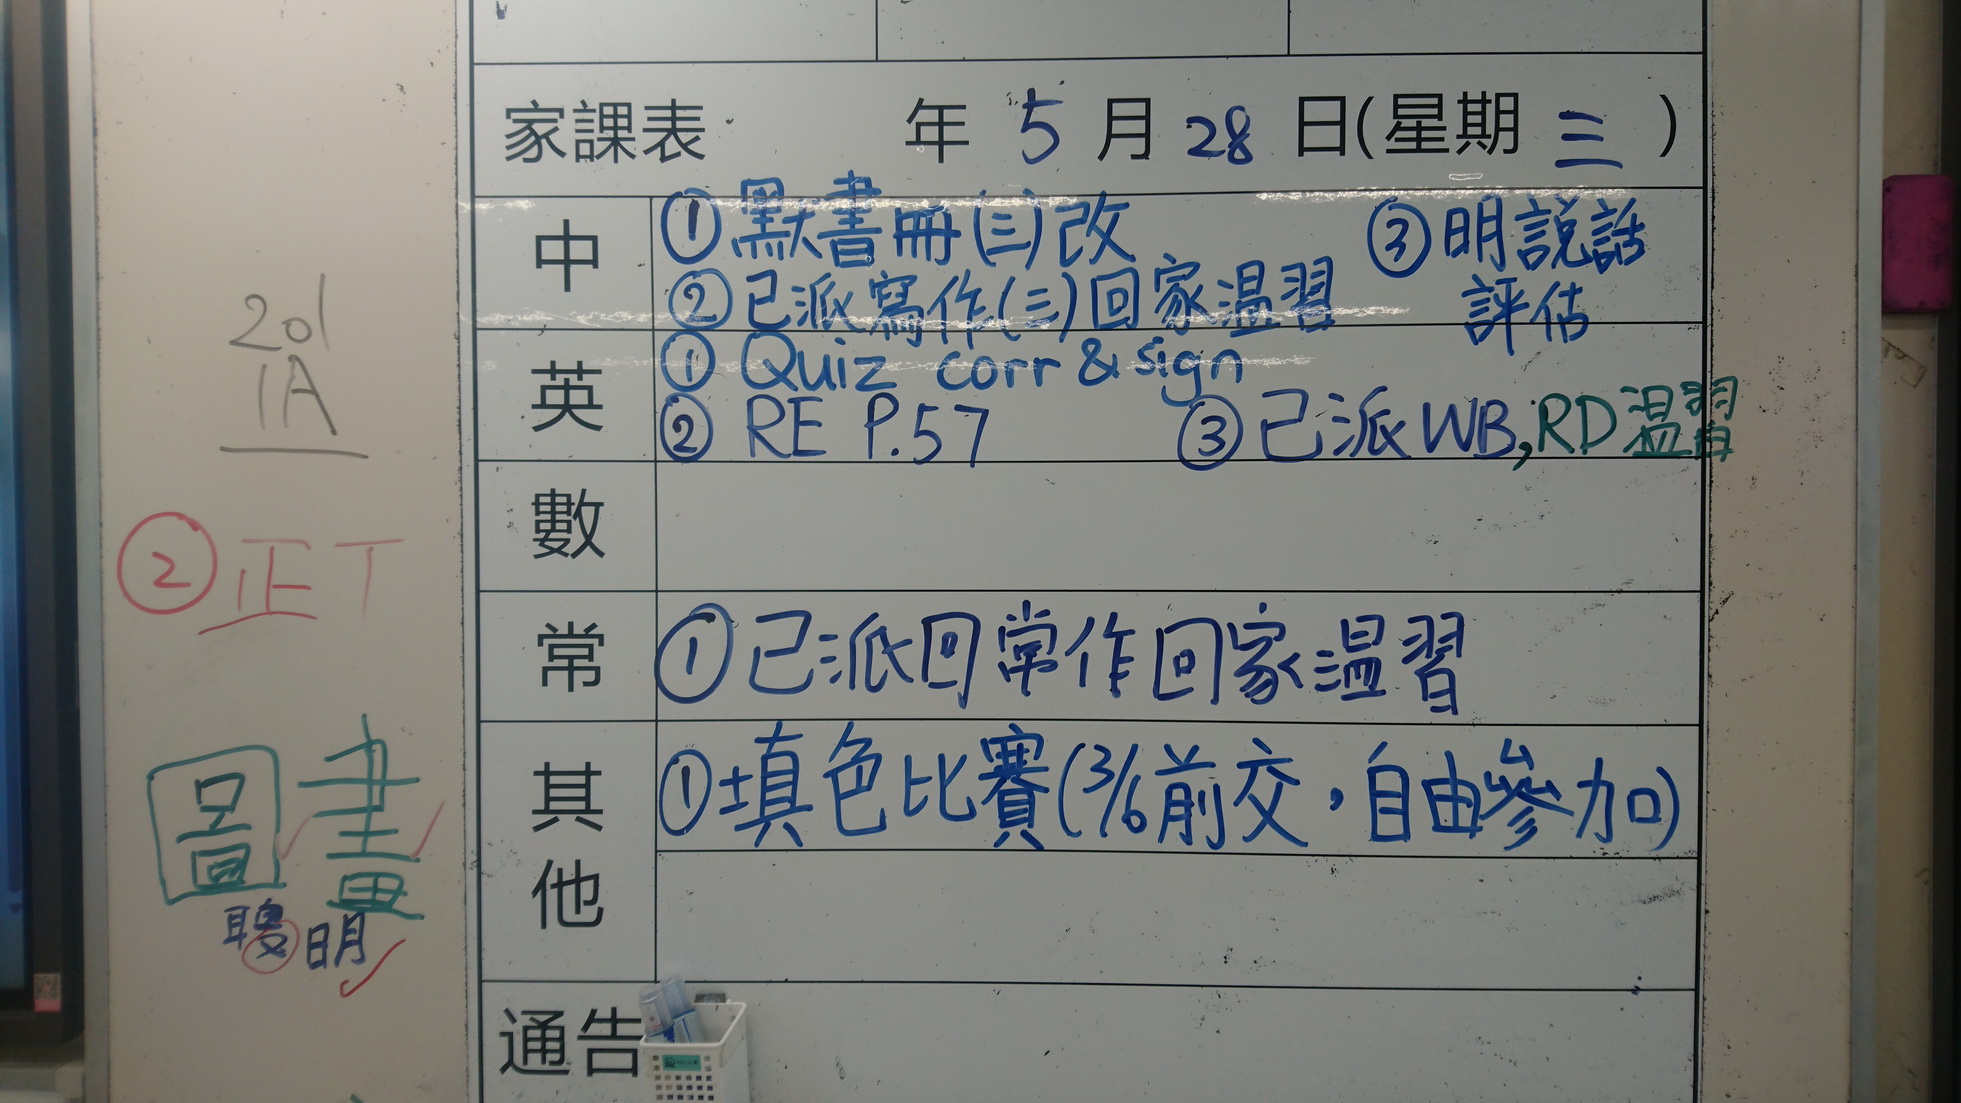 家課表 年 5 月 28 日(星期 三 )
中
① 默書冊(三)改 ③ 明說話
② 已派寫作(三)回家温習 評估
英
① Quiz corr & sign
② RE P.57 ③ 已派 WB, RD 温習
數
常
① 已派回常作回家温習
其他
① 填色比賽(3/6前交，自由參加)
通告
201
1A
② 正 T
圖畫
聰明